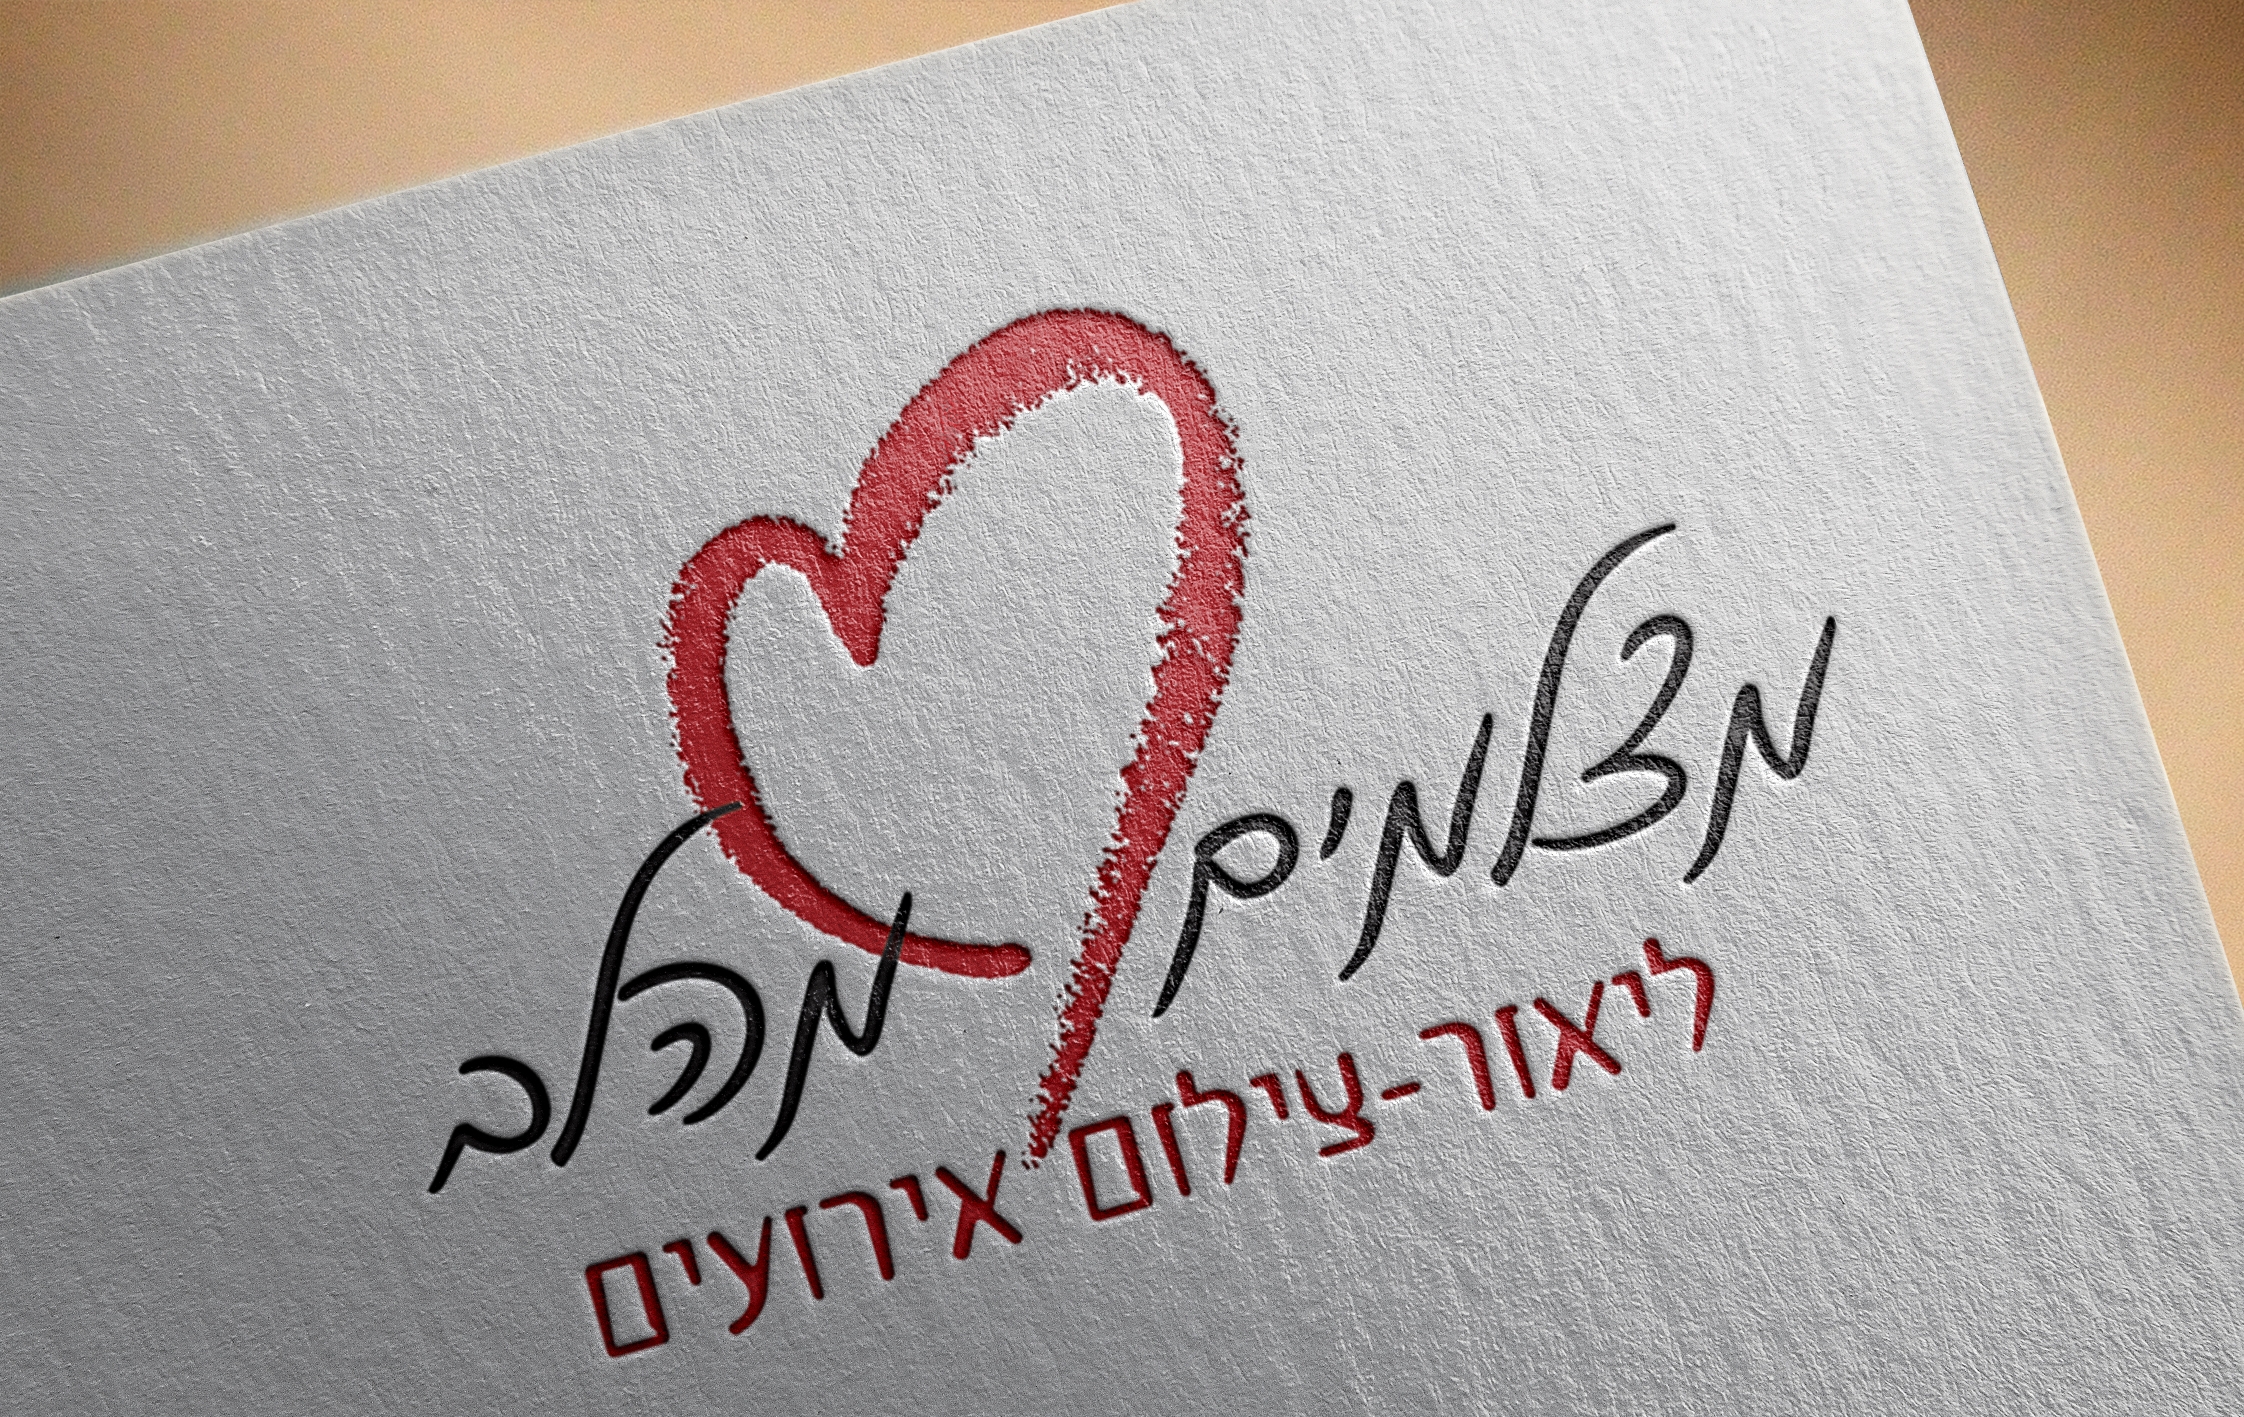 מצלמים מהלב
ליאור-צילום אירועים